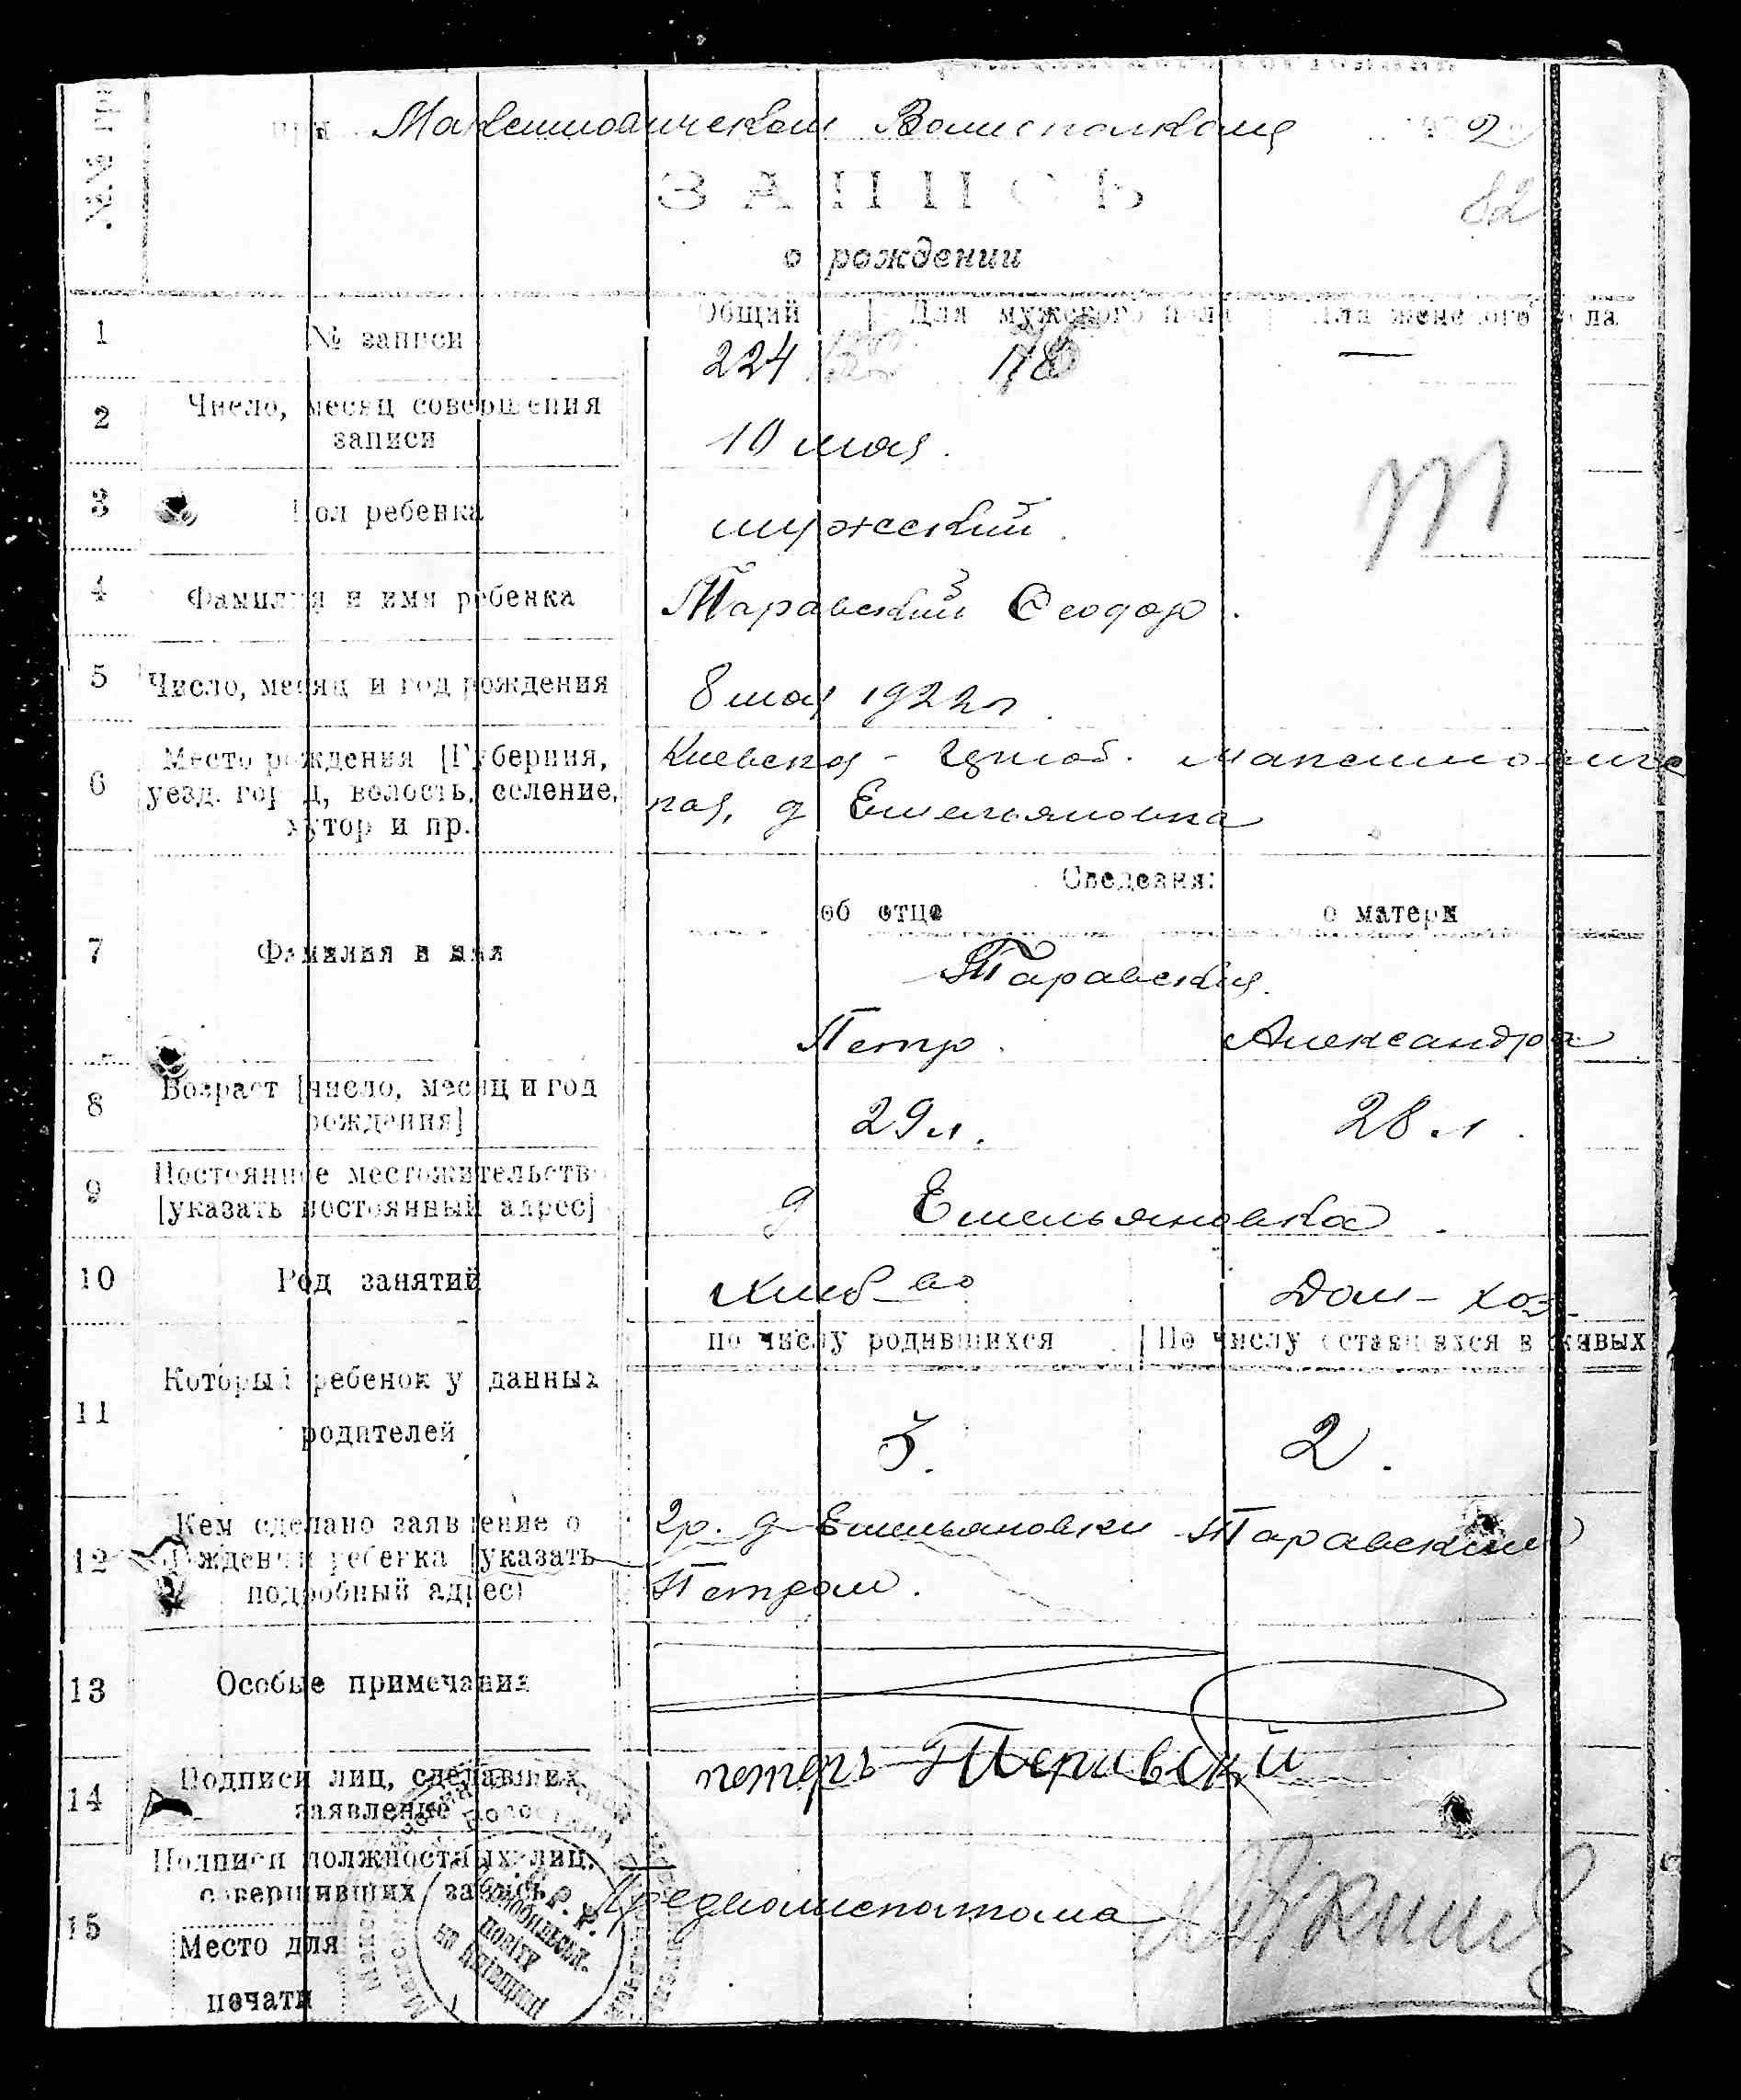 №№ гра
при Максимовическом Волисполкоме 2
82
ЗАПИСЬ
о рождении
Общий | Для мужского пола | Для женского пола
1 № записи 224 —
2 Число, месяц совершения
записи 10 мая.
3 Пол ребенка мужеский.
4 Фамилия и имя ребенка Таравский Феодор.
5 Число, месяц и год рождения 8 мая 1922 г.
6 Место рождения [Губерния,
уезд, город, волость, селение,
хутор и пр.
Киевская - Максимовиче
кая, д Емельяновка
Сведения:
об отце о матери
7 Фамилия и имя
Таравския.
Петр. Александра
8 Возраст [число, месяц и год
рождения]
29 л. 28 л.
9 Постоянное местожительство
[указать постоянный адрес]
д Емельяновка.
10 Род занятий Хлеб-во Дом-хоз
по числу родившихся | По числу оставшихся в живых
11 Который ребенок у данных
родителей
3. 2.
12 Кем сделано заявление о
рождении ребенка [указать
подробный адрес)
гр. д Емельяновки Таравским
Петром.
13 Особые примечания
14 Подписи лиц, сделавших
заявление
петръ
15 Подписи должностных лиц,
совершивших запись
Место для
печати
Р. Р.
повіту
на Київщині